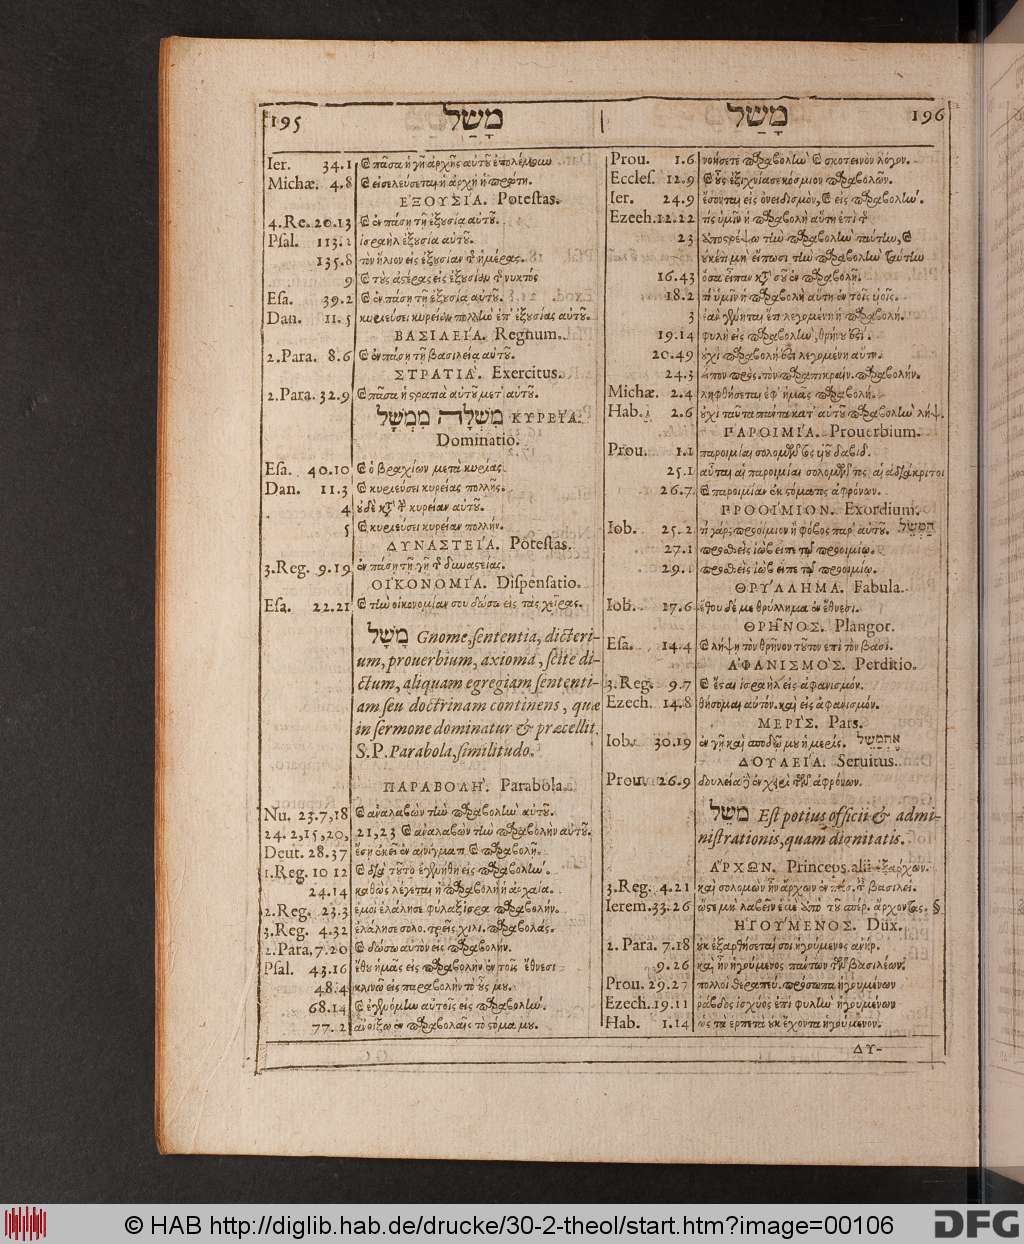 195 מָשַׁל
Ier. 34.1 & πᾶσα ἡ γῆ ἀρχῆς αὐτοῦ ἐπολέμουν
Michæ. 4.8 & εἰσελεύσεται ἡ ἀρχὴ ἡ πρώτη.
ΕΞΟΥΣΙΑ. Potestas.
4.Re. 20.13 & ἐν πάσῃ τῇ ἐξουσίᾳ αὐτοῦ.
Psal. 113.2 ἰσραὴλ ἐξουσία αὐτοῦ.
135.8 τὸν ἥλιον εἰς ἐξουσίαν τῆς ἡμέρας.
9 & τοὺς ἀστέρας εἰς ἐξουσίαν τῆς νυκτός
Esa. 39.2 & ἐν πάσῃ τῇ ἐξουσίᾳ αὐτοῦ.
Dan. 11.5 κυριεύσει κυρείαν πολλὴν ἐπ' ἐξουσίας αὐτοῦ.
ΒΑΣΙΛΕΙΑ. Regnum.
2.Para. 8.6 & ἐν πάσῃ τῇ βασιλείᾳ αὐτοῦ.
ΣΤΡΑΤΙΑ. Exercitus.
2.Para. 32.9 & πᾶσα ἡ στρατιὰ αὐτοῦ μετ' αὐτοῦ.
מִמְשָׁל מֶמְשָׁלָה ΚΥΡΕΙΑ.
Dominatio.
Esa. 40.10 & ὁ βραχίων μετὰ κυρίας
Dan. 11.3 & κυριεύσει κυρείας πολλῆς.
4 οὐδὲ κατὰ τὴν κυρείαν αὐτοῦ.
5 & κυριεύσει κυρείαν πολλήν.
ΔΥΝΑΣΤΕΙΑ. Potestas.
3.Reg. 9.19 ἐν πάσῃ τῇ γῇ τῆς δυναστείας.
ΟΙΚΟΝΟΜΙΑ. Dispensatio.
Esa. 22.21 & τὴν οἰκονομίαν σου δώσω εἰς τὰς χεῖρας.
מָשָׁל Gnome, sententia, dicteri-
um, prouerbium, axioma, scite di-
ctum, aliquam egregiam sententi-
am seu doctrinam continens, quæ
in sermone dominatur & præcellit.
S.P. Parabola, similitudo.
ΠΑΡΑΒΟΛΗ. Parabola.
Nu. 23.7,18 & ἀναλαβὼν τὴν παραβολὴν αὐτοῦ.
24. 2,15,20, 21,23 & ἀναλαβὼν τὴν παραβολὴν αὐτοῦ.
Deut. 28.37 ἔσῃ ἐκεῖ ἐν αἰνίγματι & παραβολῇ.
1.Reg. 10 12 & διὰ τοῦτο ἐγενήθη εἰς παραβολήν.
24.14 καθὼς λέγεται ἡ παραβολὴ ἡ ἀρχαία.
2.Reg. 23.3 ἐμοὶ ἐλάλησε φυλαξισρα παραβολήν.
3.Reg. 4.32 ἐλάλησε σολο. τρεῖς χιλι. παραβολάς.
2.Para. 7.20 & δώσω αὐτὸν εἰς παραβολήν.
Psal. 43.16 ἔθου ἡμᾶς εἰς παραβολὴν ἐν τοῖς ἔθνεσι
48.4 κλινῶ εἰς παραβολὴν τὸ οὖς μου.
68.14 & ἐγενόμην αὐτοῖς εἰς παραβολήν.
77.2 ἀνοίξω ἐν παραβολαῖς τὸ στόμα μου.
מָשַׁל 196
Prou. 1.6 νοήσετε παραβολὴν & σκοτεινὸν λόγον.
Eccles. 12.9 & οὖς ἐξιχνιάσε κόσμιον παραβολῶν.
Ier. 24.9 ἔσονται εἰς ὀνειδισμὸν, & εἰς παραβολήν.
Ezech. 12.22 τίς ὑμῖν ἡ παραβολὴ αὕτη ἐπὶ τῆς
23 ἀποστρέψω τὴν παραβολὴν ταύτην, &
οὐκέτι μὴ εἴπωσι τὴν παραβολὴν ταύτην
16.43 ὅσα εἶπαν κατὰ σοῦ ἐν παραβολῇ.
18.2 τί ὑμῖν ἡ παραβολὴ αὕτη ἐν τοῖς υἱοῖς.
3 ἐὰν γένηται ἔτι λεγομένη ἡ παραβολή.
19.14 φυλὴ εἰς παραβολὴν θρήνου ἐστί.
20.49 οὐχὶ παραβολή ἐστι λεγομένη αὕτη.
24.3 εἶπον πρὸς τὸν παραπικραίν. παραβολήν.
Michæ. 2.4 ληφθήσεται ἐφ' ἡμᾶς παραβολή.
Hab. 2.6 οὐχὶ ταῦτα πάντα κατ' αὐτοῦ παραβολὴν λήψ.
ΠΑΡΟΙΜΙΑ. Prouerbium.
Prou. 1.1 παροιμίαι σολομῶντος υἱοῦ δαβίδ.
25.1 αὗται αἱ παροιμίαι σολομῶντος αἱ ἀδιάκριτοι
26.7 & παροιμίαν ἐκ στόματος ἀφρόνων.
ΠΡΟΟΙΜΙΟΝ. Exordium.
Iob. 25.2 τί γάρ; προοίμιον ἢ φόβος παρ' αὐτοῦ. הַמְשֵׁל
27.1 προσθεὶς ἰὼβ εἶπε τῷ προοιμίῳ.
29.1 προσθεὶς ἰὼβ εἶπε τῷ προοιμίῳ.
ΘΡΥΛΛΗΜΑ. Fabula.
Iob. 17.6 ἔθου δέ με θρύλλημα ἐν ἔθνεσι.
ΘΡΗΝΟΣ. Plangor.
Esa. 14.4 & λήψῃ τὸν θρῆνον τοῦτον ἐπὶ τὸν βασι.
ΑΦΑΝΙΣΜΟΣ. Perditio.
3.Reg. 9.7 & ἔσται ἰσραὴλ εἰς ἀφανισμόν.
Ezech. 14.8 θήσομαι αὐτόν. καὶ εἰς ἀφανισμόν.
ΜΕΡΙΣ. Pars.
Iob. 30.19 ἐν γῇ καὶ σποδῷ μου ἡ μερίς.
ΔΟΥΛΕΙΑ. Seruitus.
Prou. 26.9 δουλεία ἐν χειρὶ τῶν ἀφρόνων.
משל Est potius officii & admi-
nistrationis, quam dignitatis.
ΑΡΧΩΝ. Princeps. alii ἐξάρχων.
3.Reg. 4.21 καὶ σολομὼν ἦν ἄρχων ἐν πάσ. τῆς βασιλεί.
Ierem. 33.26 ὥστε μὴ λαβεῖν ἐμὲ ὑπὸ τοῦ σπέρ. ἄρχοντας. §
ΗΓΟΥΜΕΝΟΣ. Dux.
2. Para. 7.18 οὐκ ἐξαρθήσεταί σοι ἡγούμενος ἀνὴρ.
9.26 καὶ ἦν ἡγούμενος πάντων τῶν βασιλέων.
Prou. 29.27 πολλοὶ θεραπεύ. πρόσωπα ἡγουμένων
Ezech. 19.11 ῥάβδος ἰσχύος ἐπὶ φυλὴν ἡγουμένων
Hab. 1.14 ὡς τὰ ἑρπετὰ οὐκ ἔχοντα ἡγούμενον.
ΔΥ-
© HAB http://diglib.hab.de/drucke/30-2-theol/start.htm?image=00106
DFG